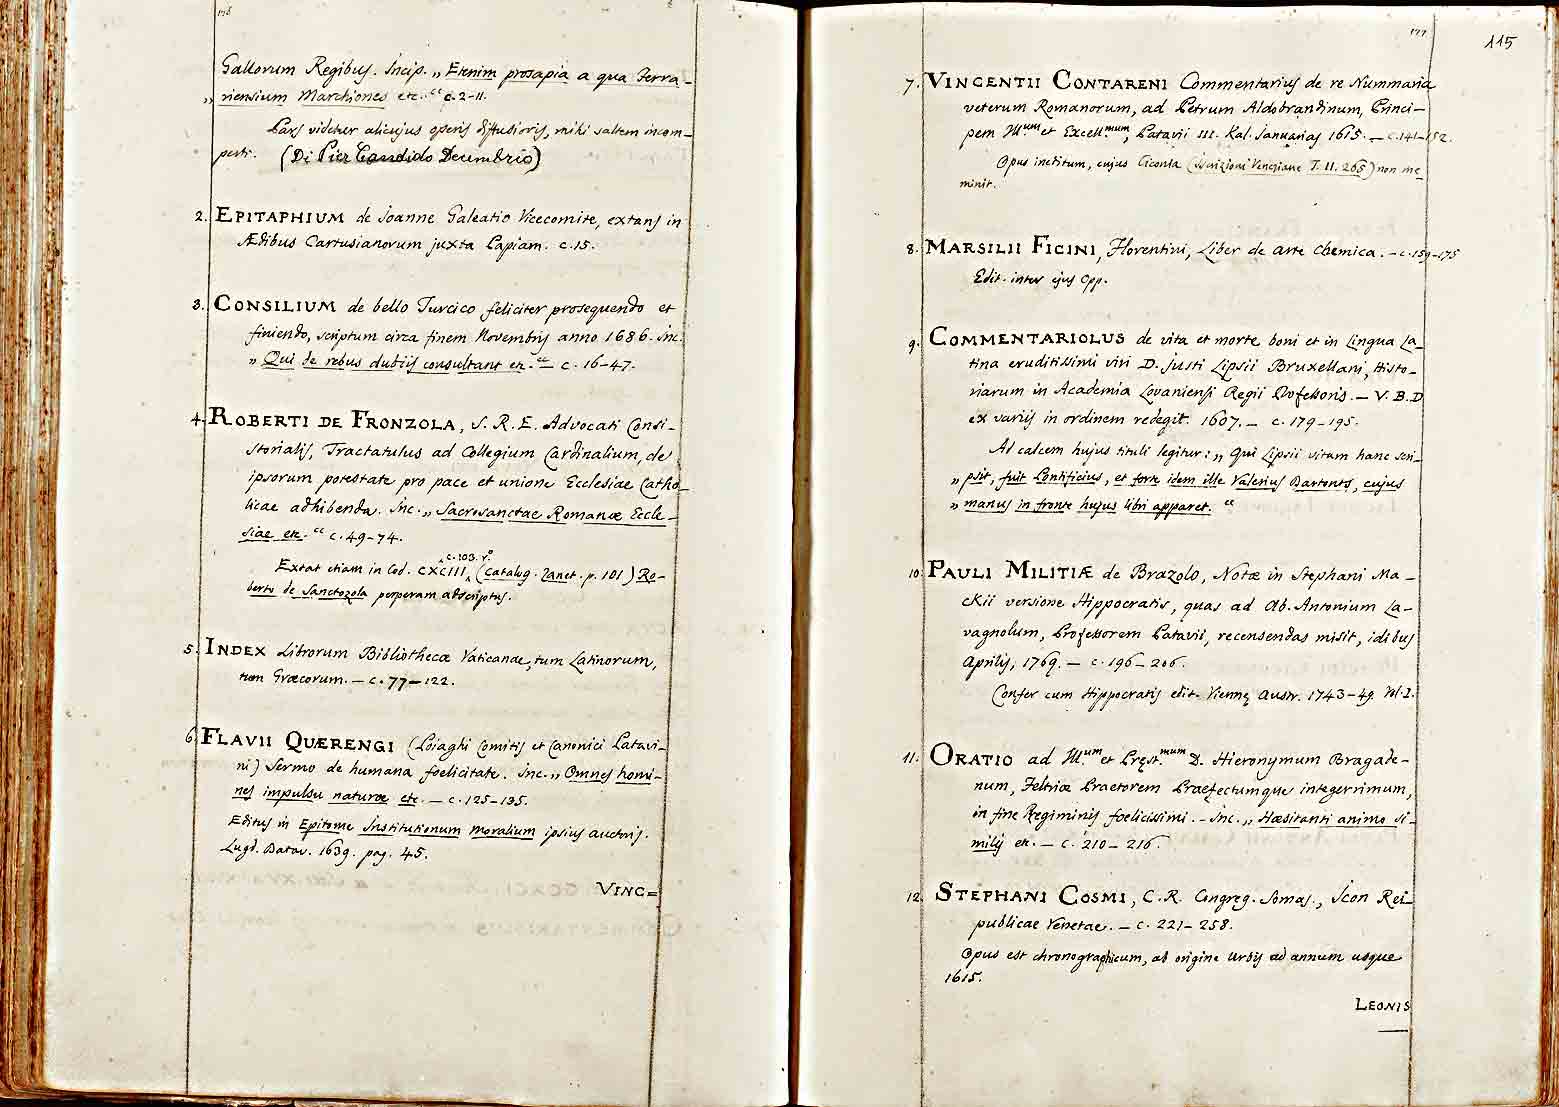 176
Gallorum Regibus. Incip. „ Etenim prosapia a qua Ferra-
„ riensium Marchiones etc. “ c. 2-11.
Pars videtur alicujus operis diffusioris, mihi saltem incom-
perti. (Di Pier Candido Decembrio)
2. EPITAPHIUM de Joanne Galeatio Vicecomite, extans in
Ædibus Cartusianorum juxta Papiam. c. 15.
3. CONSILIUM de bello Turcico feliciter prosequendo et
finiendo, scriptum circa finem Novembris anno 1686. Inc.
„ Qui de rebus dubiis consultant etc. “ — c. 16-47.
4. ROBERTI DE FRONZOLA, S. R. E. Advocati Consi-
storialis, Tractatulus ad Collegium Cardinalium, de
ipsorum potestate pro pace et unione Ecclesiae Catho-
licae adhibenda. Inc. „ Sacrosanctae Romanæ Eccle-
siae etc. “ c. 49-74.
c. 103. r.º
Extat etiam in Cod. CXCIII (Catalog. Zanet. p. 101) Ro-
berto de Sanctozola perperam adscriptus.
5. INDEX Librorum Bibliothecæ Vaticanae, tum Latinorum,
tum Græcorum. — c. 77-122.
6. FLAVII QUÆRENGI (Poiaghi Comitis et Canonici Patavi-
ni) Sermo de humana foelicitate. Inc. „ Omnes homi-
nes impulsu naturæ etc. — c. 125-135.
Editus in Epitome Institutionum moralium ipsius auctoris.
Lugd. Batav. 1639. pag. 45.
VINC=
177
115
7. VINCENTII CONTARENI Commentarius de re Nummaria
veterum Romanorum, ad Petrum Aldobrandinum, Princi-
pem Ill.um et Excell.mum, Patavii III. Kal. Januarias 1615. — c. 141-152.
Opus ineditum, cujus Ciconia (iscrizioni Veneziane T. II. 265) non me-
minit.
8. MARSILII FICINI, Florentini, Liber de arte Chemica. — c. 159-175
Edit. inter ejus Opp.
9. COMMENTARIOLUS de vita et morte boni et in Lingua La-
tina eruditissimi viri D. Justi Lipsii Bruxellani, Histo-
riarum in Academia Lovaniensi Regii Professoris. — V. B. D
ex variis in ordinem redegit. 1607. — c. 179-195.
Ad calcem hujus tituli legitur: „ Qui Lipsii vitam hanc scri-
„ psit, fuit Pontificius, et forte idem ille Valerius Bartonts, cujus
„ manus in fronte hujus libri apparet. “
10. PAULI MILITIÆ de Brazolo, Notæ in Stephani Ma-
ckii versione Hippocratis, quas ad Ab. Antonium La-
vagnolum, Professorem Patavii, recensendas misit, idibus
Aprilis, 1769. — c. 196-206.
Confer cum Hippocratis edit. Viennę Austr. 1743-49. Vol. 2.
11. ORATIO ad Ill.um et Pręst.mum D. Hieronymum Bragade-
num, Feltriæ Praetorem Praefectumque integerrimum,
in fine Regiminis foelicissimi. — Inc. „ Hæsitanti animo si-
milis etc. — c. 210-216.
12. STEPHANI COSMI, C. R. Congreg. Somas., Icon Rei-
publicae Venetae. — c. 221-258.
Opus est chronographicum, ab origine Urbis ad annum usque
1615.
LEONIS